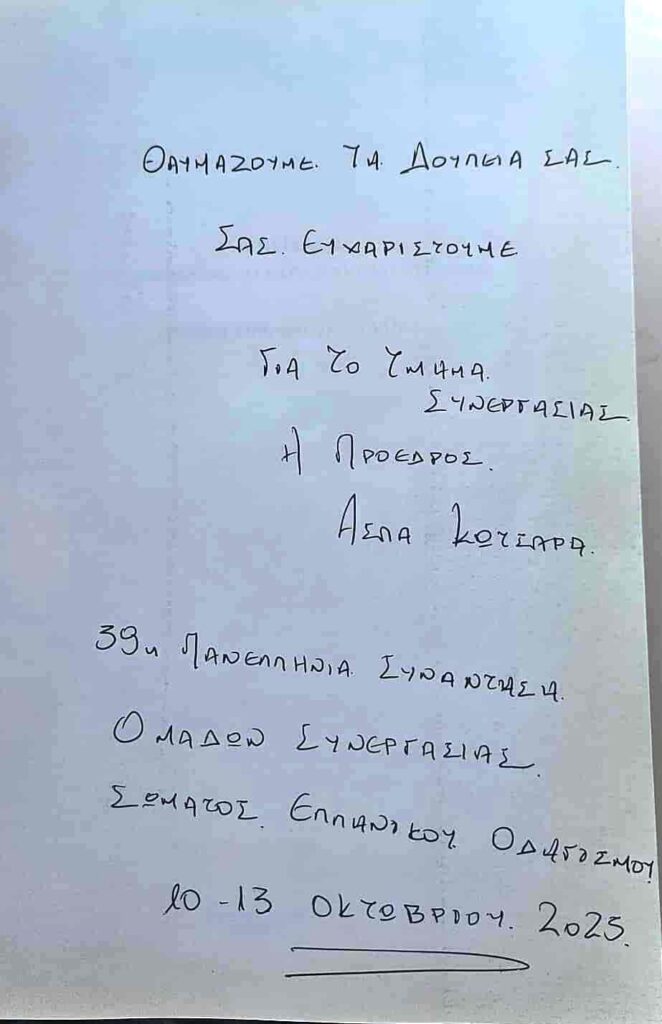 ΘΑΥΜΑΖΟΥΜΕ ΤΑ ΔΟΥΛΕΙΑ ΣΑΣ.
ΣΑΣ ΕΥΧΑΡΙΣΤΟΥΜΕ
ΓΙΑ ΤΟ ΤΜΗΜΑ
ΣΥΝΕΡΓΑΣΙΑΣ
Η ΠΡΟΕΔΡΟΣ.
ΑΣΠΑ ΚΩΤΣΑΡΑ.
39η ΠΑΝΕΛΛΗΝΙΑ ΣΥΝΑΝΤΗΣΗ
ΟΜΑΔΩΝ ΣΥΝΕΡΓΑΣΙΑΣ
ΣΩΜΑΤΟΣ ΕΛΛΗΝΙΚΟΥ ΟΔΗΓΙΣΜΟΥ
10-13 ΟΚΤΩΒΡΙΟΥ. 2025.